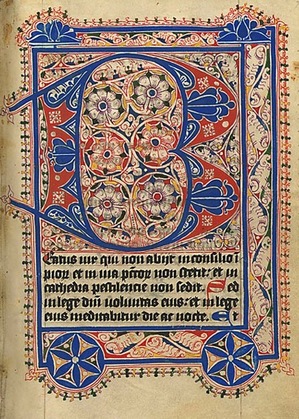 B
Eatus uir qui non abijt in consilio i
pior et in uia pctor non stetit: et in
cathedra pestilencie non sedit. Sed
in lege dni uoluntas eius: et in lege
eius meditabitur die ac nocte. Et